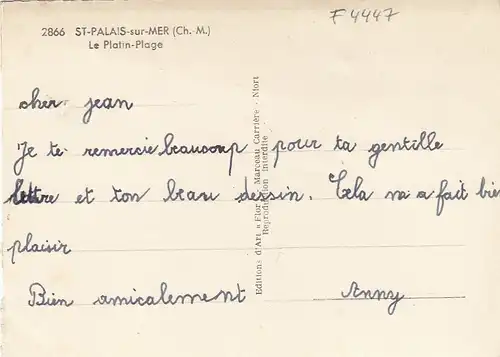 F 4447
2866 ST-PALAIS-sur-MER (Ch.-M.)
Le Platin-Plage
cher jean
Je te remercie beaucoup pour ta gentille
lettre et ton beau dessin. Cela m a fait bien
plaisir
Bien amicalement Anny
Editions d'Art « Flor » Marceau Carrière - Niort
Reproduction interdite